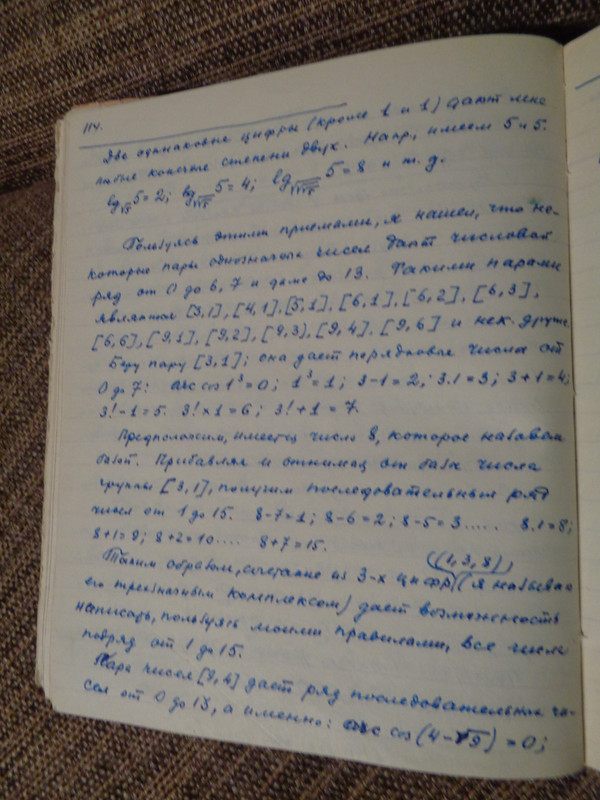 114.
Две одинаковые цифры (кроме 1 и 1) дают мне
любые конечные степени двух. Напр, имеем 5 и 5.
lg√5 5=2; lg√√5 5=4; lg√√√5 5=8 и т.д.
Пользуясь этими приемами, я нашел, что не-
которые пары однозначных чисел дают числовой
ряд от 0 до 6, 7 и даже до 13. Такими парами
являются [3,1], [4,1], [5,1], [6,1], [6,2], [6,3],
[6,6], [9,1], [9,2], [9,3], [9,4], [9,6] и нек. другие.
Беру пару [3,1]; она дает порядковые числа от
0 до 7: arc cos 1³=0; 1³=1; 3-1=2; 3.1=3; 3+1=4;
3!-1=5. 3!×1=6; 3!+1=7.
Предположим, имеется число 8, которое назовем
базой. Прибавляя и отнимая от базы числа
группы [3,1], получим последовательный ряд
чисел от 1 до 15. 8-7=1; 8-6=2; 8-5=3.... 8.1=8;
8+1=9; 8+2=10.... 8+7=15.
((1,3,8))
Таким образом, сочетание из 3-х цифр (я называю
его трехзначным комплексом) дает возможность
написать, пользуясь моими правилами, все числа
подряд от 1 до 15.
Пара чисел [9,4] дает ряд последовательных чи-
сел от 0 до 13, а именно: arc cos (4-√9) = 0;